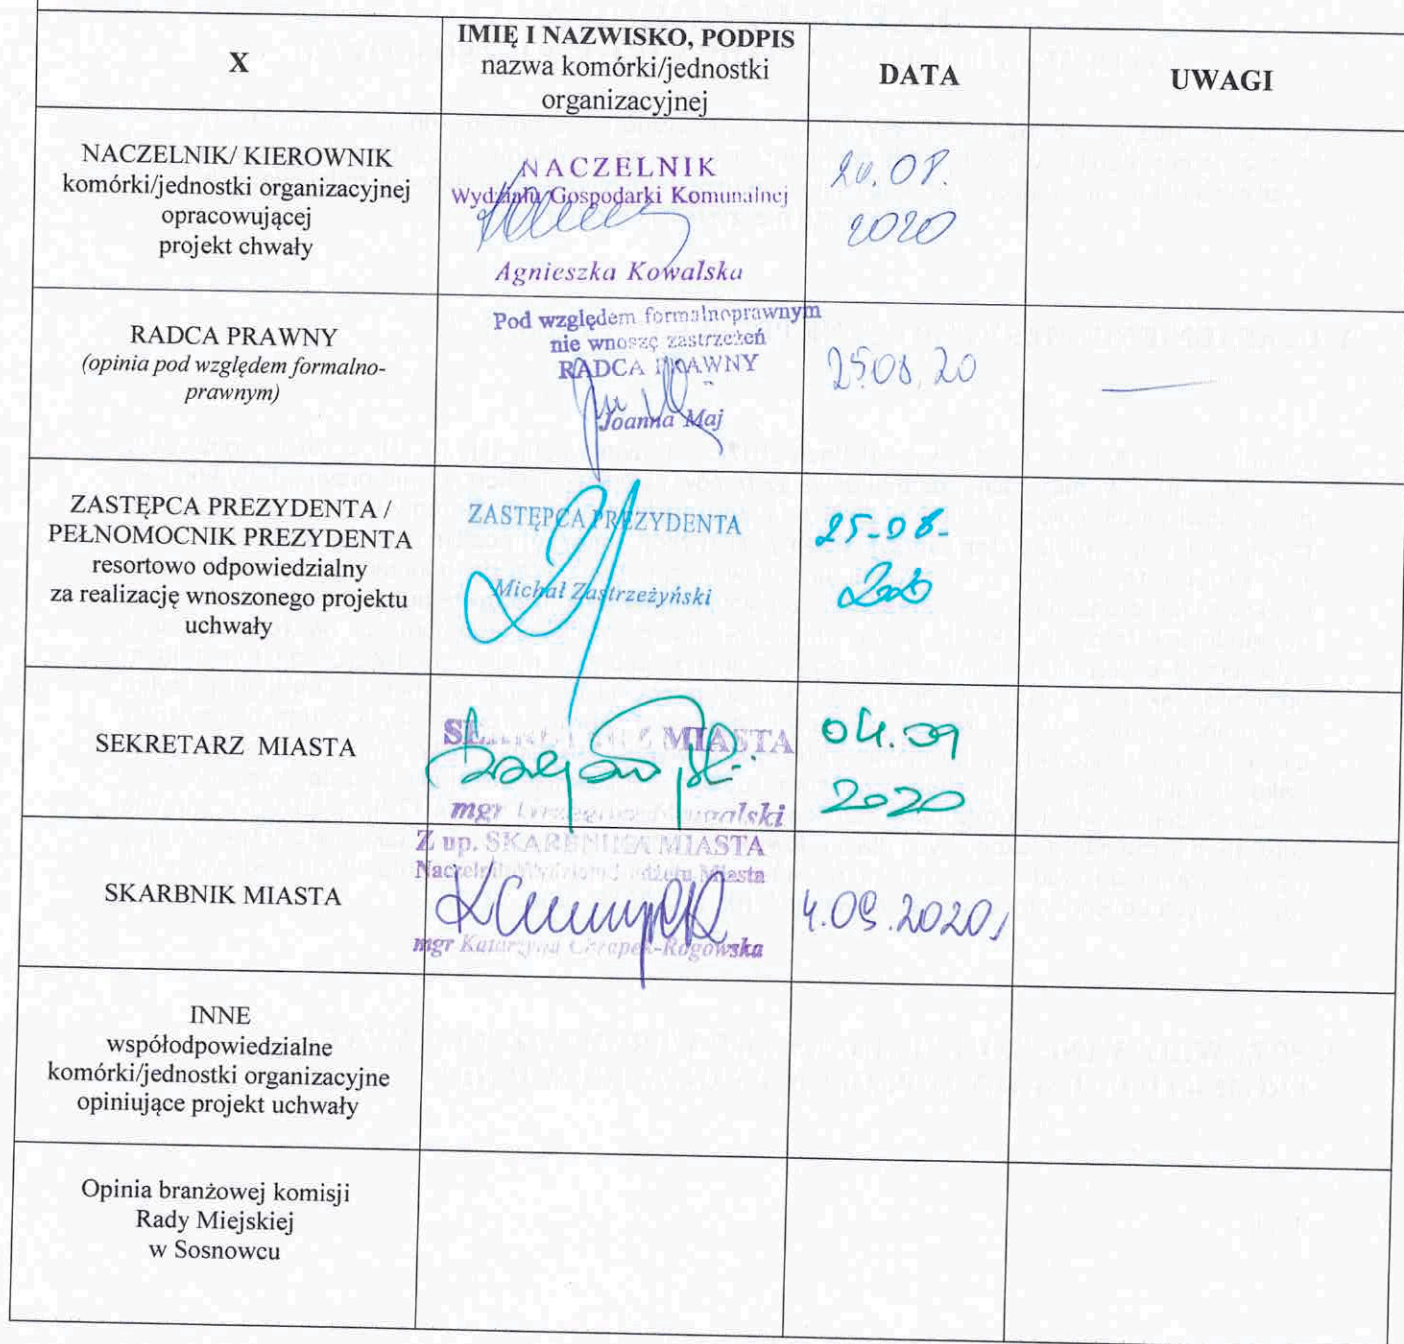 X
IMIĘ I NAZWISKO, PODPIS
nazwa komórki/jednostki
organizacyjnej
DATA
UWAGI
NACZELNIK/ KIEROWNIK
komórki/jednostki organizacyjnej
opracowującej
projekt chwały
NACZELNIK
Wydziału Gospodarki Komunalnej
Agnieszka Kowalska
20.08.
2020
RADCA PRAWNY
(opinia pod względem formalno-
prawnym)
Pod względem formalnoprawnym
nie wnoszę zastrzeżeń
RADCA PRAWNY
Joanna Maj
25.08.20
ZASTĘPCA PREZYDENTA /
PEŁNOMOCNIK PREZYDENTA
resortowo odpowiedzialny
za realizację wnoszonego projektu
uchwały
ZASTĘPCA PREZYDENTA
Michał Zastrzeżyński
25-08-
SEKRETARZ MIASTA
SEKRETARZ MIASTA
mgr
04.09
2020
SKARBNIK MIASTA
Z up. SKARBNIKA MIASTA
Naczelnik Wydziału Budżetu Miasta
mgr Katarzyna Chrapek-Rogowska
4.09.2020r
INNE
współodpowiedzialne
komórki/jednostki organizacyjne
opiniujące projekt uchwały
Opinia branżowej komisji
Rady Miejskiej
w Sosnowcu